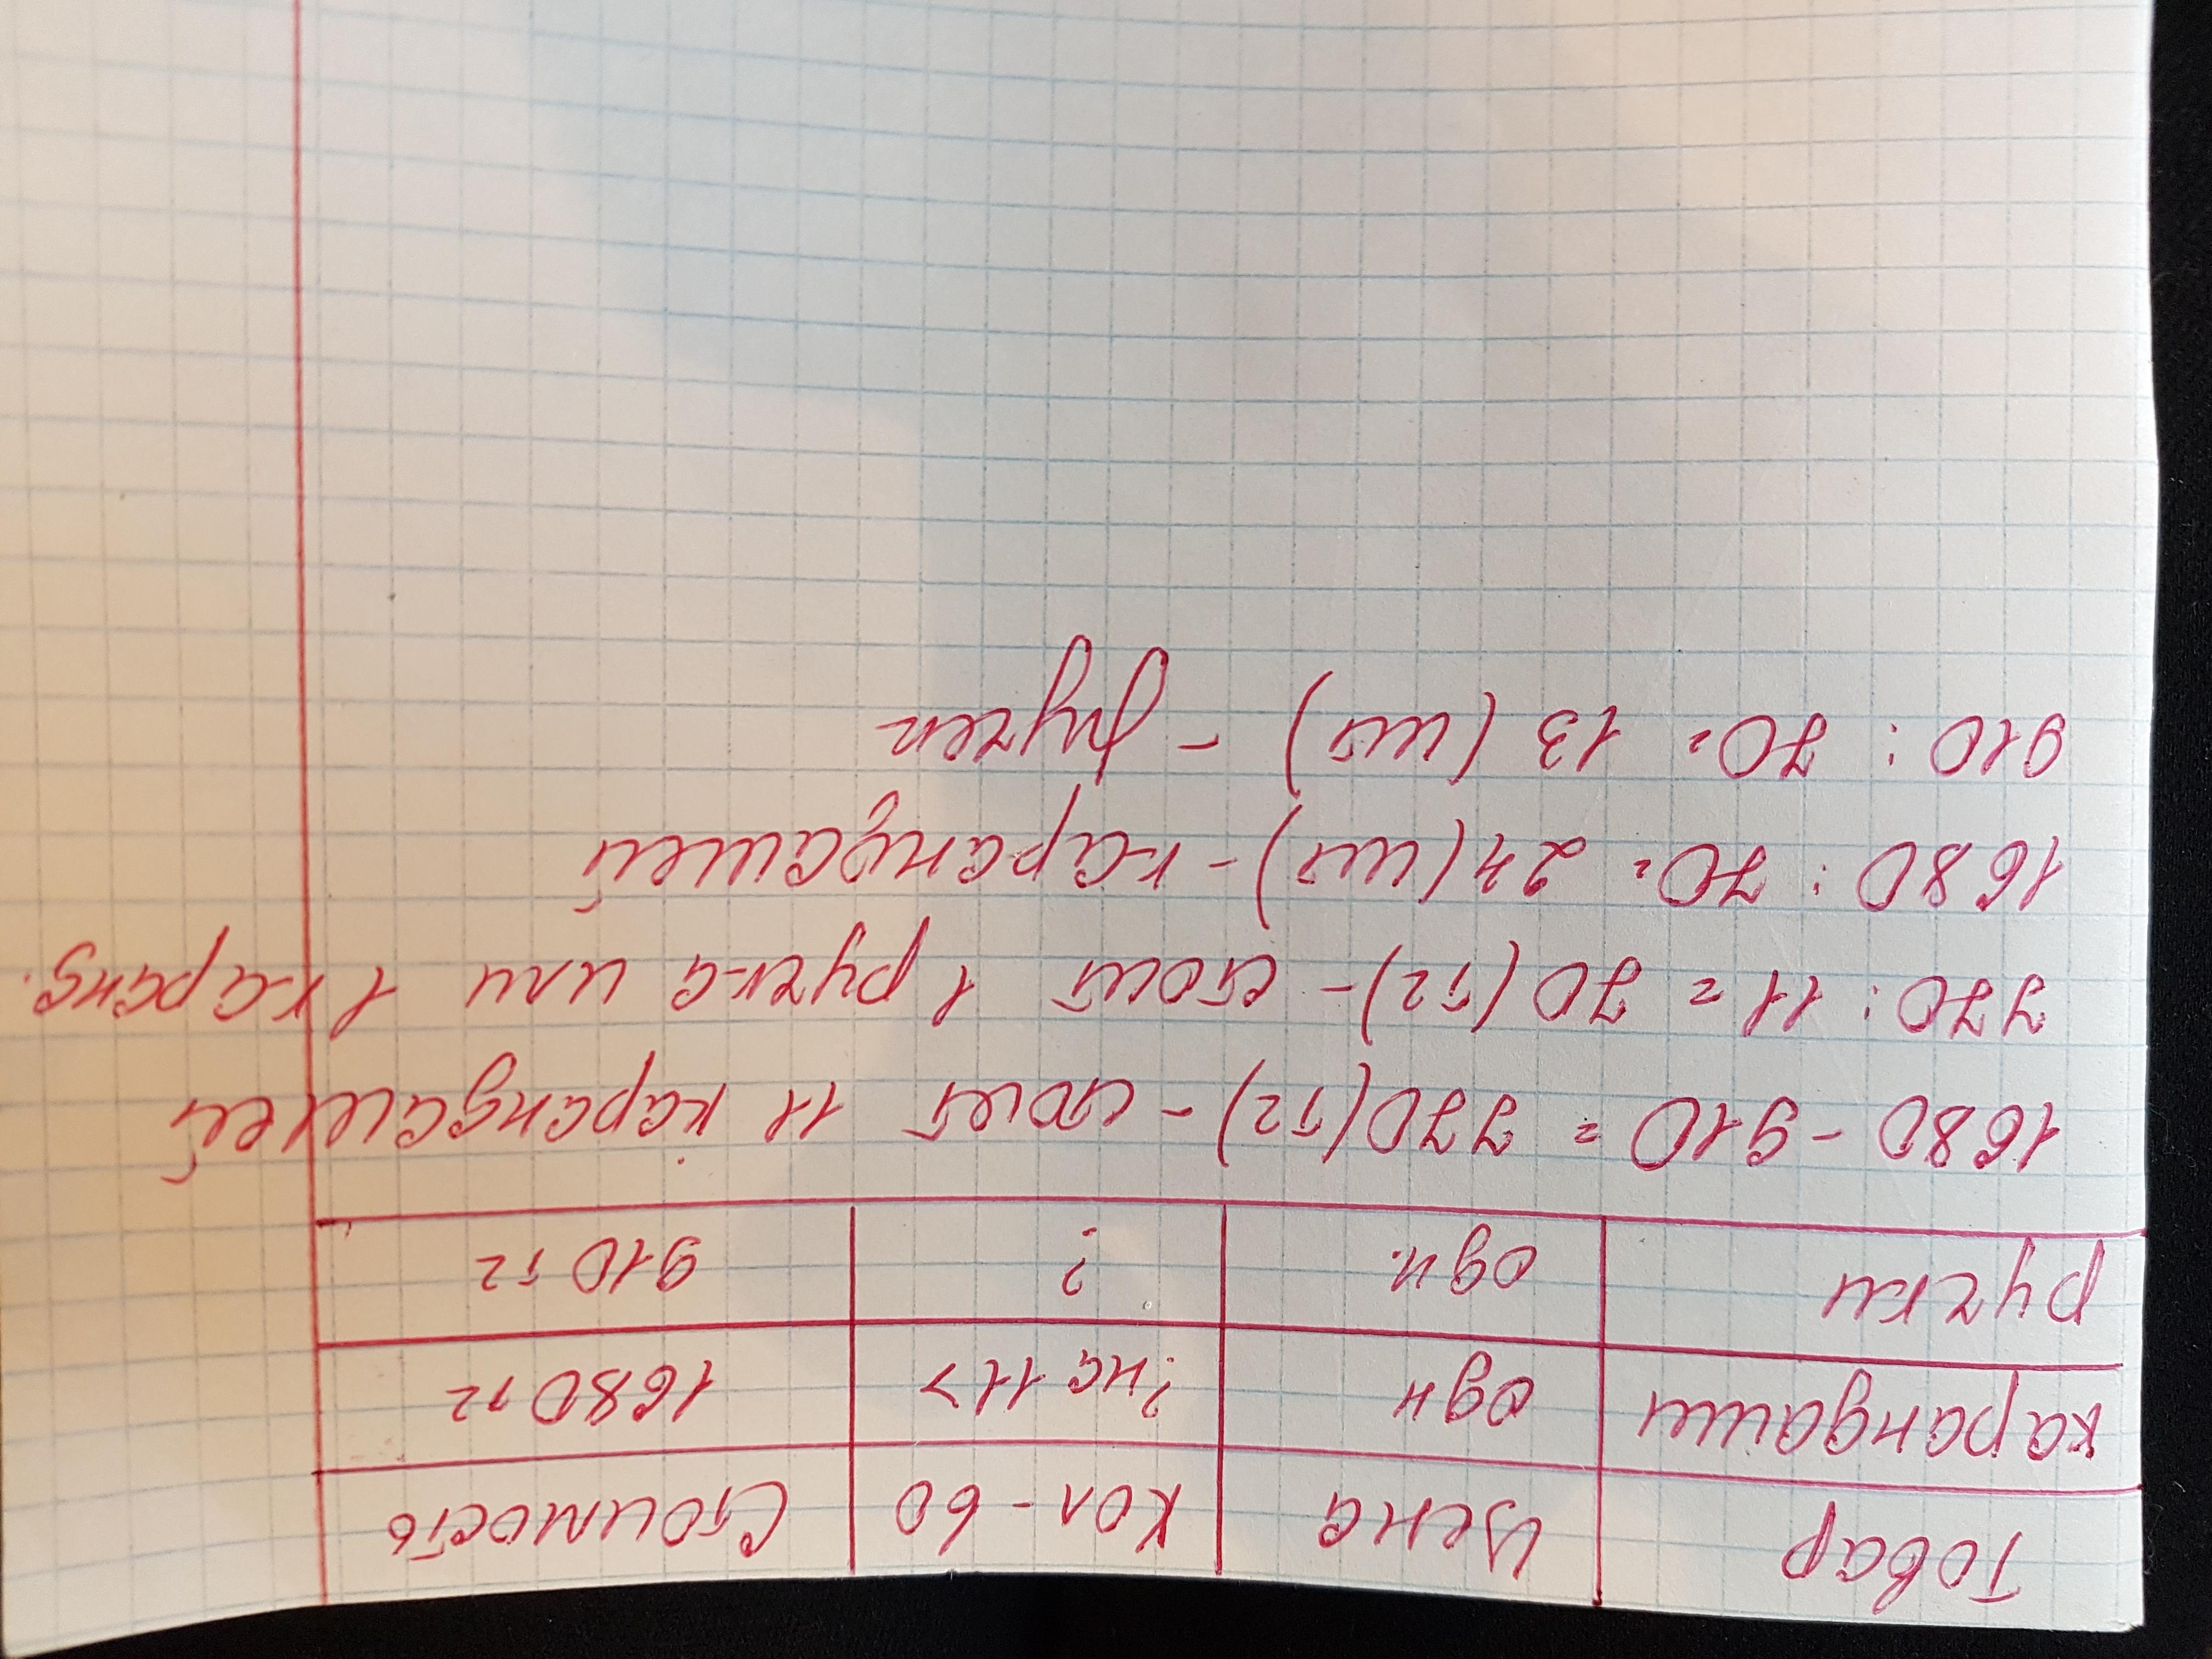 Товар Цена Кол-во Стоимость
карандаши одн ? на 11 > 1680 тг
ручки одн. ? 910 тг
1680 - 910 = 770 (тг) - стоит 11 карандашей
770 : 11 = 70 (тг) - стоит 1 ручка или 1 каранд.
1680 : 70 = 24 (шт) - карандашей
910 : 70 = 13 (шт) - ручек